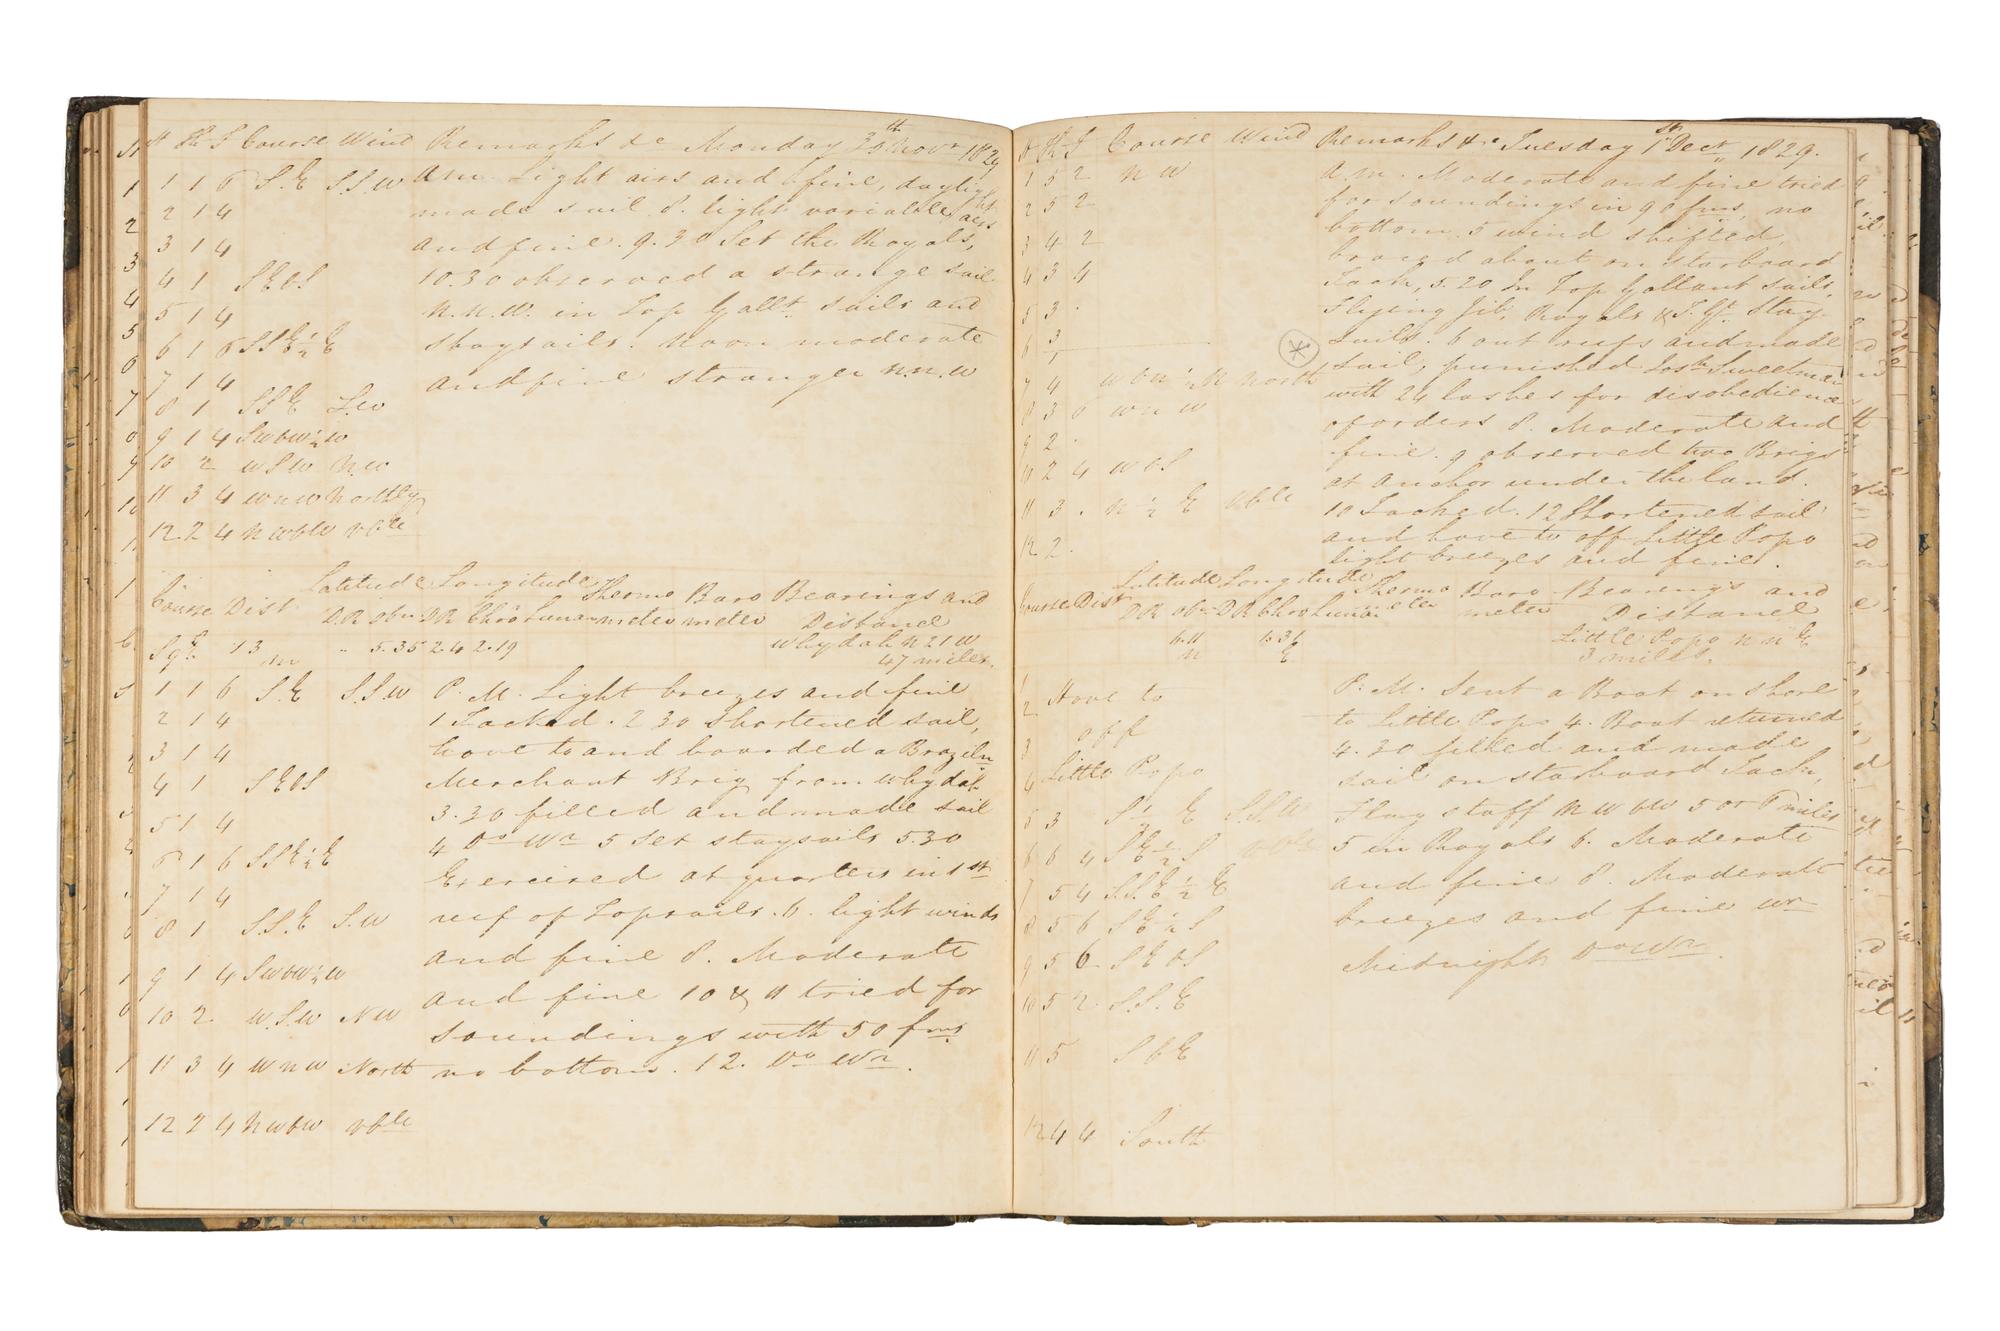 H Kn F Course Wind Remarks &c Monday 30th Novr 1829
1 1 6 S.E S.S.W A.M. Light airs and fine, daylight
2 1 4 made sail 8. light variable airs
3 1 4 and fine. 9.30 Set the Royals,
4 1 SEbS 10.30 observed a strange sail
5 1 4 N.N.W. in Top Gallt. Sails and
6 1 6 SSE½E staysails. Noon moderate
7 1 4 and fine stranger N.N.W
8 1 SSE S.W
9 1 4 SWbW½W
10 2 WSW N.W
11 3 4 WNW Northly
12 2 4 NWbW vble
Course Dist Latitude Longitude Thermo Baro Bearings and
DR obn DR Chro Lunar meter meter Distance
S 9 E 13 " 5.35 2.42 2.19 Whydah N 21 W
m 47 miles.
1 1 6 S.E S.S.W P.M. Light breezes and fine
2 1 4 1 Tacked. 2 30 Shortened sail,
3 1 4 hove to and boarded a Brazeln
4 1 SEbS Merchant Brig from Whydah
5 1 4 3.30 filled and made sail
6 1 6 SSE½E 4 Do Wr 5 Set staysails 5.30
7 1 4 Exercised at quarters in 1st
8 1 S.S.E S.W reef of Topsails. 6. light winds
9 1 4 SWbW½W and fine 8. Moderate
10 2 W.S.W NW and fine 10 & 11 tried for
soundings with 50 fms
11 3 4 WNW North no bottom. 12. Do Wr.
12 2 4 NWbW vble
H Kn F Course Wind Remarks &c Tuesday 1st Decr 1829.
1 5 2 NW A.M. Moderate and fine tried
2 5 2 for soundings in 90 fms, no
3 4 2 bottom. 5 wind shifted,
braced about on starboard
4 3 4 Tack, 5.20 In Top Gallant sails,
5 3 . Flying Jib, Royals & T. Gt. Stay
6 3 sails. 6 out reefs and made
sail, punished Josh Sweetman
7 4 WbN½N North with 24 lashes for disobedience
8 3 6 WNW of orders 8. Moderate and
9 2 . fine. 9 observed two Brigs
10 2 4 WbS at Anchor under the land.
11 3 . N½E vble 10 Tacked. 12 Shortened sail
12 2 . and hove to off Little Popo
light breezes and fine.
Course Dist Latitude Longitude Thermo Baro Bearings and
DR obn DR Chro Lunar meter meter Distance
6.11 1.36 Little Popo NNE
N E 3 miles.
Hove to P.M. Sent a Boat on shore
off to Little Popo 4. Boat returned
4.30 filled and made
Little Popo sail on starboard Tack,
5 3 S½E S.S.W Flag staff NWbW 5 or 6 miles
6 6 4 SE½S vble 5 in Royals 6. Moderate
7 5 4 S.S.E½E and fine 8. Moderate
8 5 6 SE½S breezes and fine Wr
9 5 6 SEbS Midnight Do Wr.
10 5 2 S.S.E
11 5 SbE
12 4 4 South